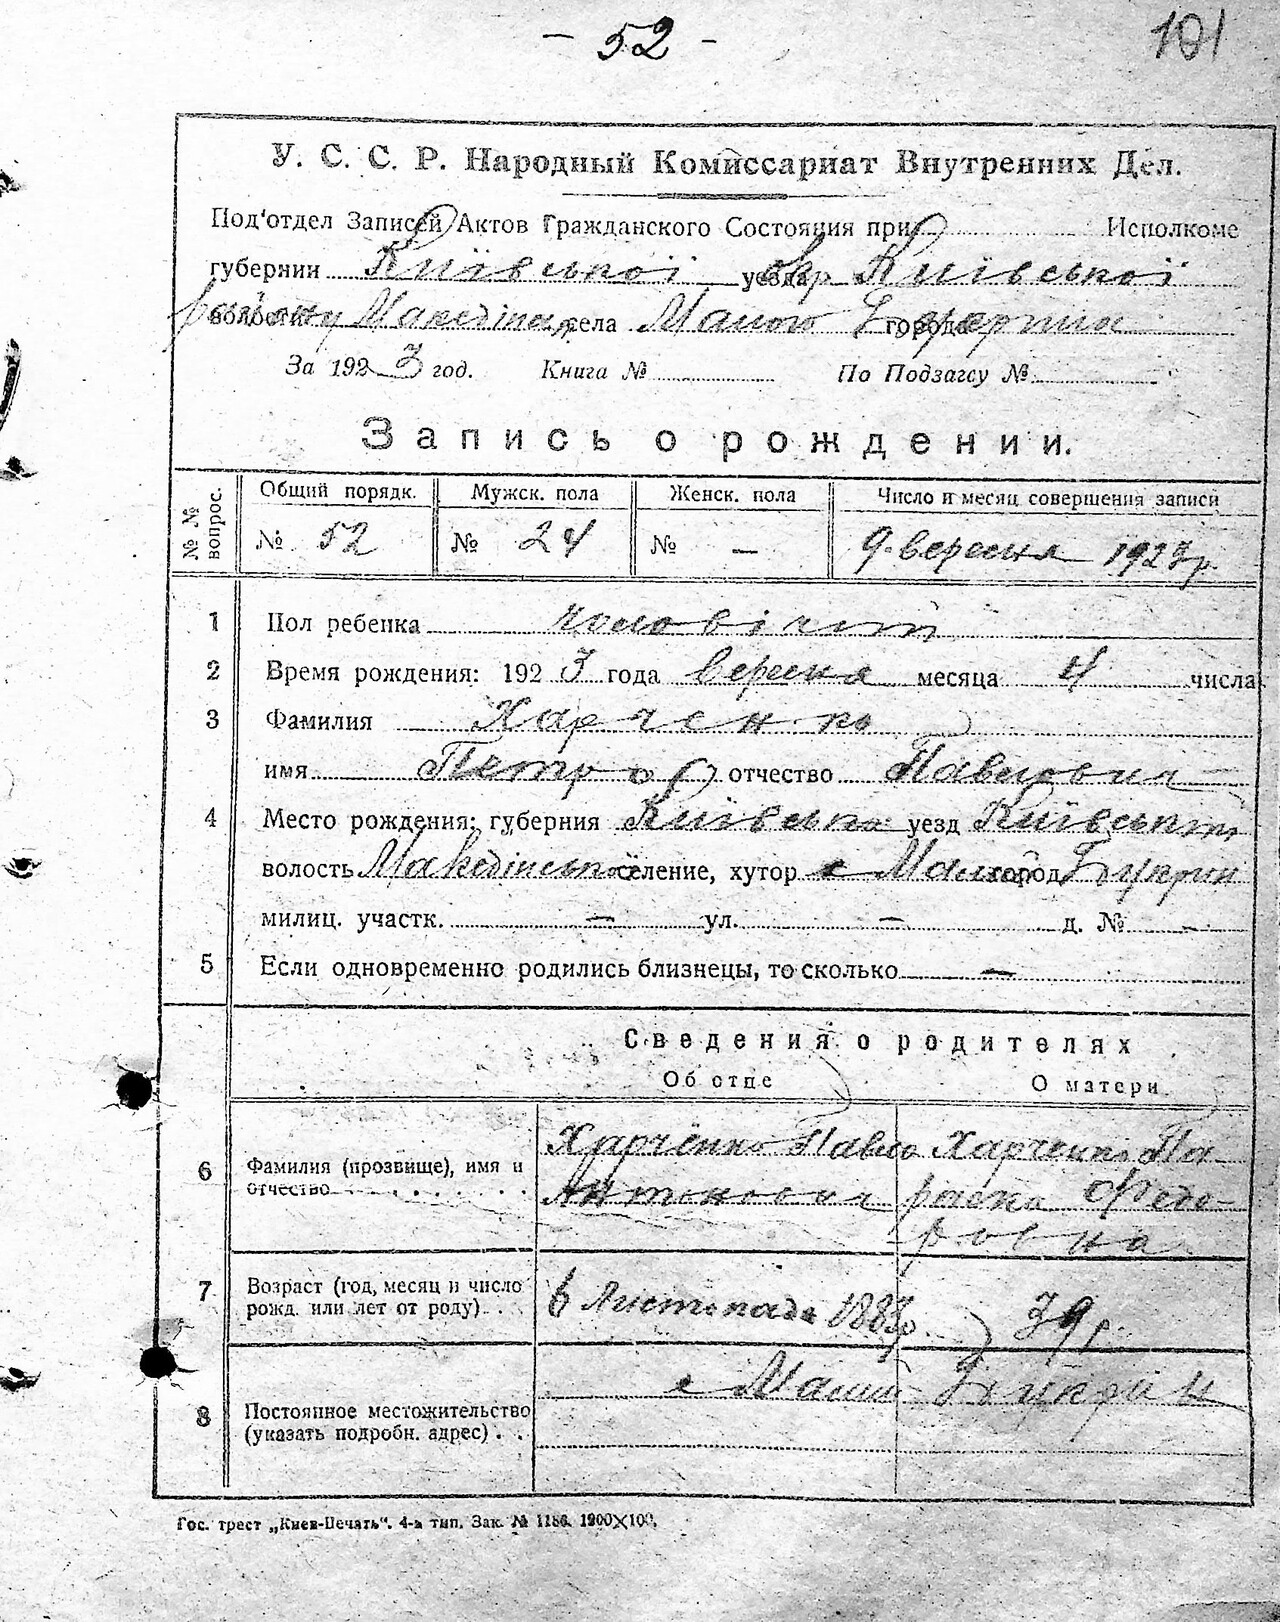 - 52 -
101
У. С. С. Р. Народный Комиссариат Внутренних Дел.
Под'отдел Записей Актов Гражданского Состояния при Исполкоме
губернии Київської уезда окр Київської
волости району села Малого города Букрина
За 1923 год. Книга № По Подзагсу №
Запись о рождении.
№ № вопрос.
Общий порядк. Мужск. пола Женск. пола Число и месяц совершения записи
№ 52 № 24 № — 9. вересня 1923 р.
1 Пол ребенка чоловічий
2 Время рождения: 1923 года вересня месяца 4 числа
3 Фамилия Харченко
имя Петро отчество Павлович
4 Место рождения: губерния Київська уезд Київський
волость селение, хутор с Малий город Букрин
милиц. участк. — ул. — д. № -
5 Если одновременно родились близнецы, то сколько —
Сведения о родителях
Об отце О матери
6 Фамилия (прозвище), имя и отчество
Харченко Павло
Антонович
Харченко Па-
раска Федо-
ровна
7 Возраст (год, месяц и число рожд. или лет от роду)
6 Листопада 1883 р. 39 р.
8 Постоянное местожительство (указать подробн. адрес)
с Малий Букрин
Гос. трест „Киев-Печать". 4-я тип. Зак. № 1186. 1200×100.